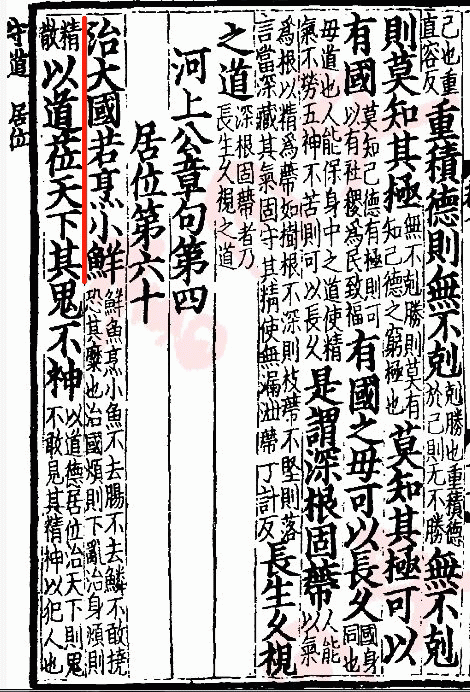 己也重
直容反
重積德則無不剋
剋勝也重積德
於己則无不勝
無不剋
則莫知其極
無不剋勝則莫有
知己德之窮極也
莫知其極可以
有國
莫知己德有極則可
以有社稷為民致福
有國之母可以長久
國身
同也
母道也人能保身中之道使精
氣不勞五神不苦則可以長久
是謂深根固蔕
人能
以氣
為根以精為蔕如樹根不深則枝蔕不堅則落
言當深藏其氣固守其精使無漏泄 蔕丁計反
長生久視
之道
深根固蔕者乃
長生久視之道
河上公章句第四
居位第六十
治大國若烹小鮮
鮮魚烹小魚不去腸不去鱗不敢撓
恐其糜也治國煩則下亂治身煩則
精
散
以道莅天下其鬼不神
以道德居位治天下則鬼
不敢見其精神以犯人也
守道 居位